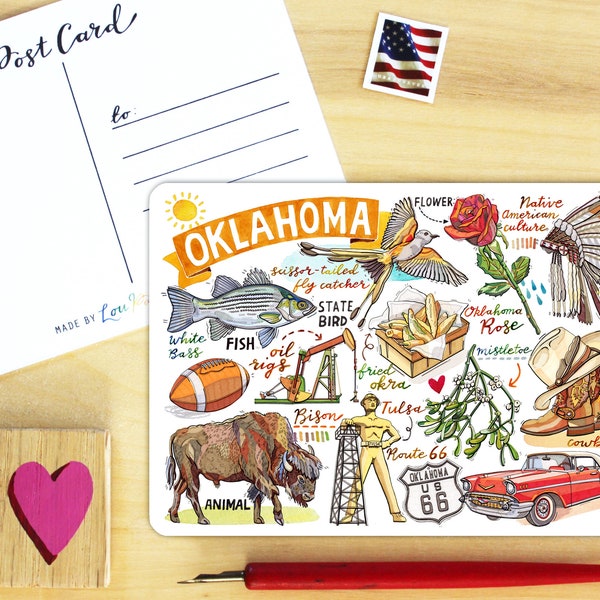 Post Card
to:
MADE BY Lou
OKLAHOMA
FLOWER
Native
American
culture
scissor-tailed
fly catcher
STATE
BIRD
Oklahoma
Rose
White
Bass
FISH
oil
rigs
fried
okra
mistletoe
Bison
Tulsa
Route 66
OKLAHOMA
US
66
ANIMAL